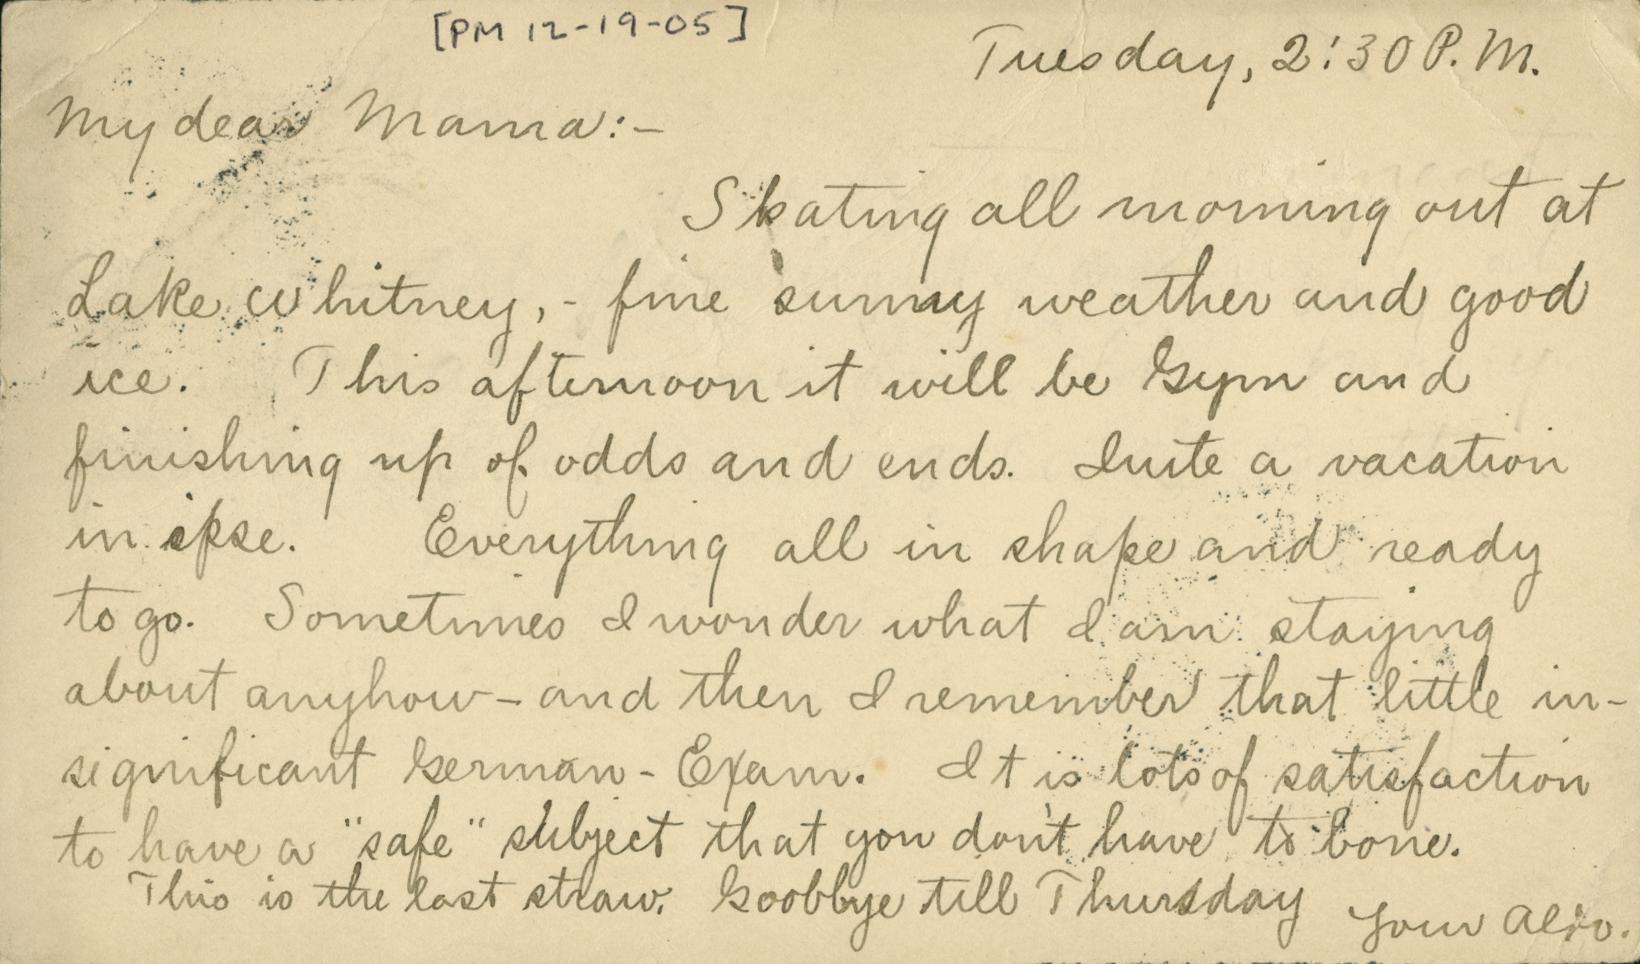 [PM 12-19-05]
Tuesday, 2:30 P.M.
My dear Mama:-
Skating all morning out at
Lake Whitney, - fine sunny weather and good
ice. This afternoon it will be Gym and
finishing up of odds and ends. Quite a vacation
in ipse. Everything all in shape and ready
to go. Sometimes I wonder what I am staying
about anyhow - and then I remember that little in-
significant German - Exam. It is lots of satisfaction
to have a "safe" subject that you don't have to bone.
This is the last straw. Goobbye till Thursday
Your Aldo.